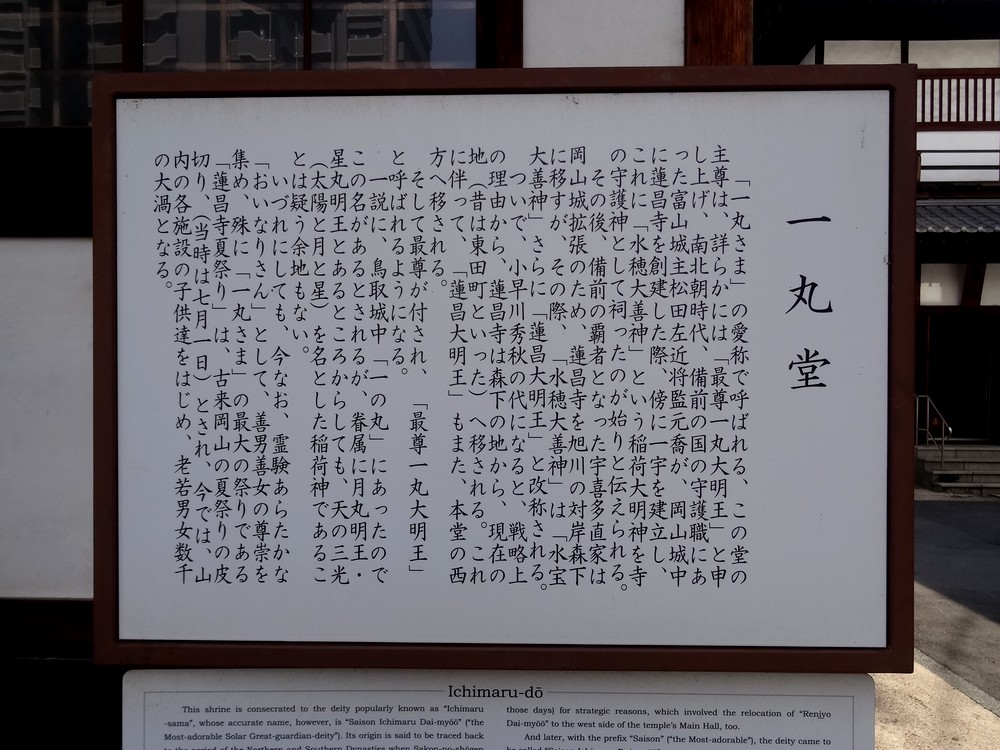 一丸堂
「一丸さま」の愛称で呼ばれる、この堂の
主尊は、詳らかには「最尊一丸大明王」と申
し上げ、南北朝時代、備前の国の守護職にあ
った富山城主松田左近将監元喬が、岡山城中
に蓮昌寺を創建した際、傍に一宇を建立し、
これに「水穂大善神」という稲荷大明神を寺
の守護神として祠ったのが始りと伝えられる。
その後、備前の覇者となった宇喜多直家は
岡山城拡張のため、蓮昌寺を旭川の対岸森下
に移すが、その際、「水穂大善神」は「水宝
大善神」さらに「蓮昌大明王」と改称される。
ついで、小早川秀秋の代になると、戦略上
の理由から、蓮昌寺は森下の地から、現在の
地（昔は東田町といった）へ移される。これ
に伴って、「蓮昌大明王」もまた、本堂の西
方へ移される。
そして最尊が付され、「最尊一丸大明王」
と呼ばれるようになる。
一説に、鳥取城中「一の丸」にあったので
この名があるとされるが、眷属に月丸明王・
星丸明王とあるところからしても、天の三光
（太陽と月と星）を名とした稲荷神であるこ
とは疑う余地もない。
いづれにしても、今なお、霊験あらたかな
「おいなりさん」として、善男善女の尊崇を
集め、殊に「一丸さま」の最大の祭りである
「蓮昌寺夏祭り」は、古来岡山の夏祭りの皮
切り、（当時は七月一日）とされ、今では、山
内の各施設の子供達をはじめ、老若男女数千
の大渦となる。
Ichimaru-dō
This shrine is consecrated to the deity popularly known as “Ichimaru
-sama”, whose accurate name, however, is “Saison Ichimaru Dai-myōō” (“the
Most-adorable Solar Great-guardian-deity”). Its origin is said to be traced back
to the period of the Northern and Southern Dynasties when Sakon-no-shōgen
those days) for strategic reasons, which involved the relocation of “Renjyo
Dai-myōō” to the west side of the temple's Main Hall, too.
And later, with the prefix “Saison” (“the Most-adorable”), the deity came to